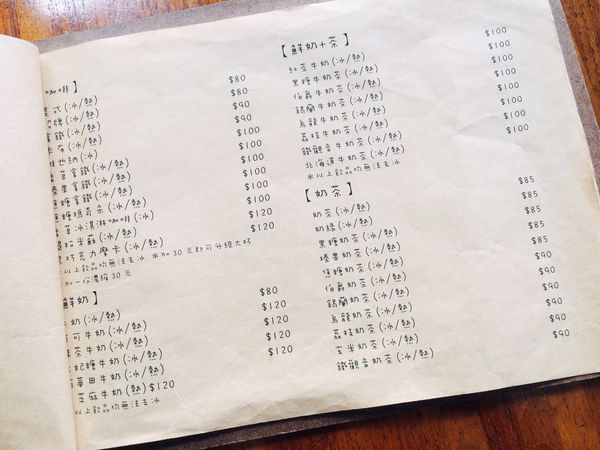 咖啡】
式(冰/熱) $80
咖啡(冰/熱) $80
拿鐵(冰/熱) $90
卡布(冰/熱) $90
維也納(冰) $100
草拿鐵(冰/熱) $100
榛果拿鐵(冰/熱) $100
焦糖拿鐵(冰/熱) $100
焦糖瑪奇朵(冰/熱) $100
草冰淇淋咖啡(冰) $100
拉米蘇(冰/熱) $120
巧克力摩卡(冰/熱) $120
以上飲品均無法去冰 ※加30元即可升級大杯
加一份濃縮30元
鮮奶】
奶(冰/熱) $80
可牛奶(冰/熱) $120
茶牛奶(冰/熱) $120
妃糖牛奶(冰/熱) $120
華田牛奶(冰/熱) $120
芝麻牛奶(熱)$120
以上飲品均無法去冰
【鮮奶+茶】
紅茶牛奶(冰/熱) $100
黑糖牛奶茶(冰/熱) $100
伯爵牛奶茶(冰/熱) $100
錫蘭牛奶茶(冰/熱) $100
烏龍牛奶茶(冰/熱) $100
荔枝牛奶茶(冰/熱) $100
鐵觀音牛奶茶(冰/熱) $100
北海道牛奶茶(冰/熱) $100
※以上飲品均無法去冰
【奶茶】
奶茶(冰/熱) $85
奶綠(冰/熱) $85
黑糖奶茶(冰/熱) $85
榛果奶茶(冰/熱) $85
焦糖奶茶(冰/熱) $85
伯爵奶茶(冰/熱) $90
錫蘭奶茶(冰/熱) $90
烏龍奶茶(冰/熱) $90
荔枝奶茶(冰/熱) $90
玄米奶茶(冰/熱) $90
鐵觀音奶茶(冰/熱) $90